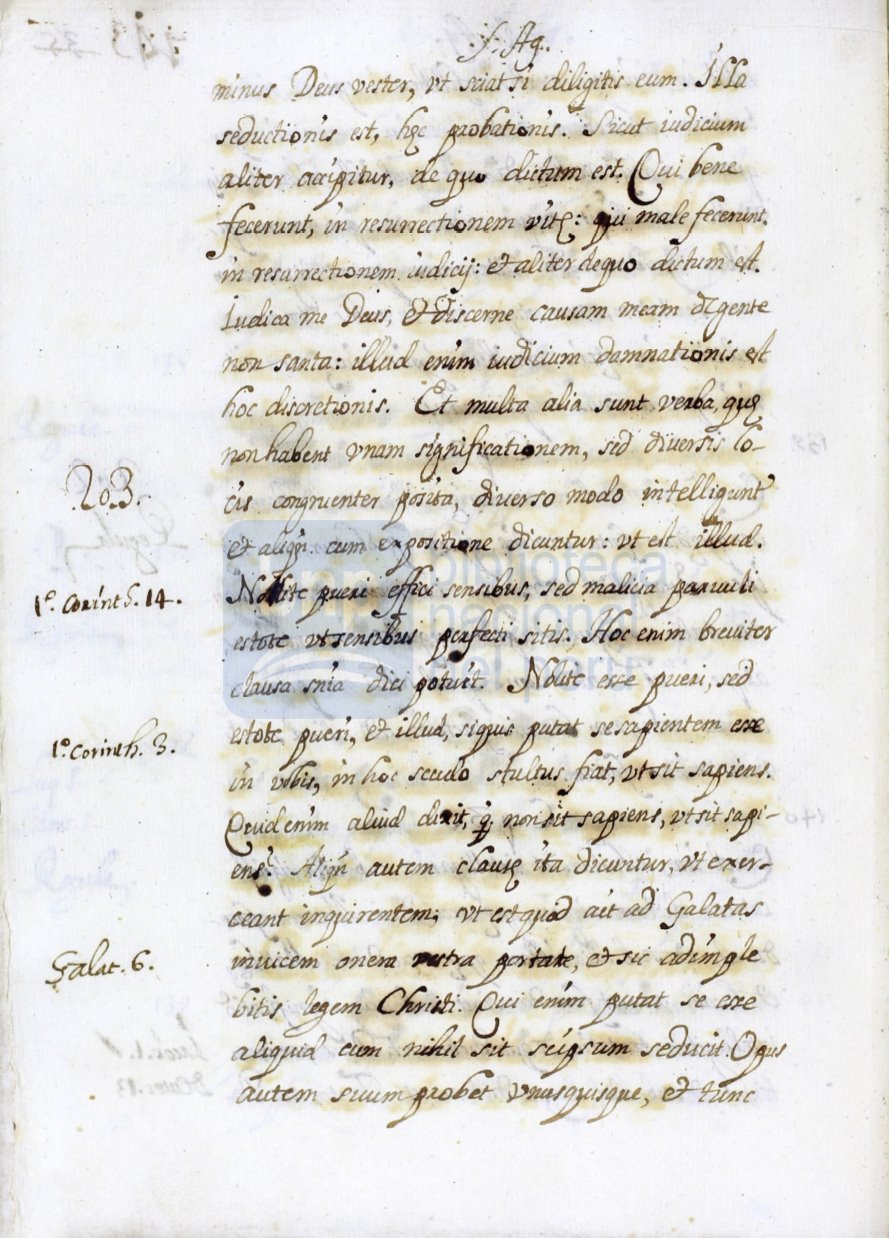 S. Ag.
minus Deus vester, vt sciat si diligitis eum. Illa
seductionis est, hęc probationis. Sicut iudicium
aliter accipitur, de quo dictum est. Qui bene
fecerunt, in resurrectionem vitę: qui male fecerunt
in resurrectionem iudicij: et aliter de quo dictum est.
Iudica me Deus, et discerne causam meam de gente
non santa: illud enim iudicium damnationis est
hoc discretionis. Et multa alia sunt verba, quę
non habent vnam significationem, sed diversis lo-
cis congruenter posita, diverso modo intelligunt
203.
et aliqn̄ cum expositione dicuntur: vt est illud.
1ª. Corinth. 14.
Nolite pueri effici sensibus, sed malicia paruuli
estote vt sensibus perfecti sitis. Hoc enim breviter
clausa snīa dici potuit. Nolite esse pueri, sed
1ª. Corinth. 3.
estote pueri, et illud, siquis putat se sapientem esse
in vobis, in hoc seculo stultus fiat, vt sit sapiens.
Quid enim aliud dixit, q̄ non sit sapiens, vt sit sapi-
ens? Aliqn̄ autem clausę ita dicuntur, vt exer-
ceant inquirentem; vt est quod ait ad Galatas
Galat. 6.
invicem onera vestra portate, et sic adimple
bitis legem Christi. Qui enim putat se esse
aliquid cum nihil sit seipsum seducit. Opus
autem suum probet vnusquisque, et tunc
biblioteca
nacional
del perú